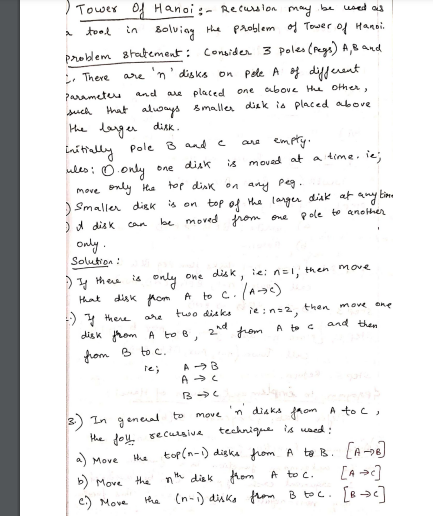 ) Tower Of Hanoi :- Recursion may be used as
a tool in solving the problem of Tower of Hanoi.
Problem statement : Consider 3 poles (pegs) A, B and
C. There are 'n' disks on pole A of different
Parameters and are placed one above the other,
such that always smaller disk is placed above
the larger disk.
Initially pole B and C are empty.
ules: ① only one disk is moved at a time. ie;
move only the top disk on any peg.
) Smaller disk is on top of the larger disk at any time
) A disk can be moved from one pole to another
only.
Solution :
) If there is only one disk, ie; n=1, then move
that disk from A to C. (A→C)
2.) If there are two disks ie; n=2, then move one
disk from A to B, 2nd from A to C and then
from B to C.
ie; A → B
A → C
B → C
3.) In general to move 'n' disks from A to C,
the foll recursive technique is used :
a) Move the top(n-1) disks from A to B. [A→B]
b) Move the nth disk from A to C. [A→C]
c.) Move the (n-1) disks from B to C. [B→C]